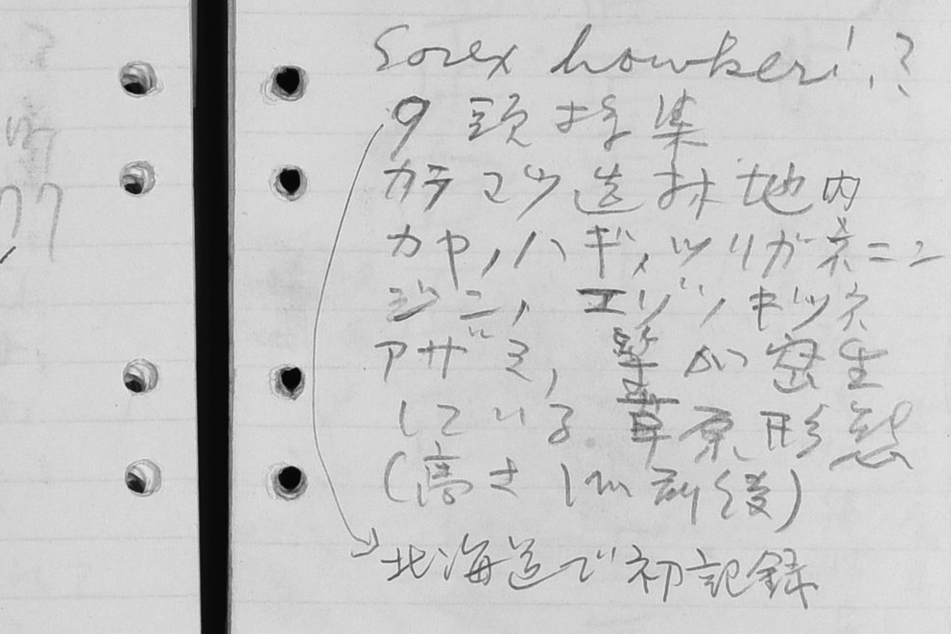 Sorex hawkeri.?
9頭採集
カラマツ造林地内
カヤ,ハギ,ツリガネニン
ジン,エゾノキツネ
アザミ,等が密生
している.草原形態
(高さ1m前後)
北海道で初記録
77